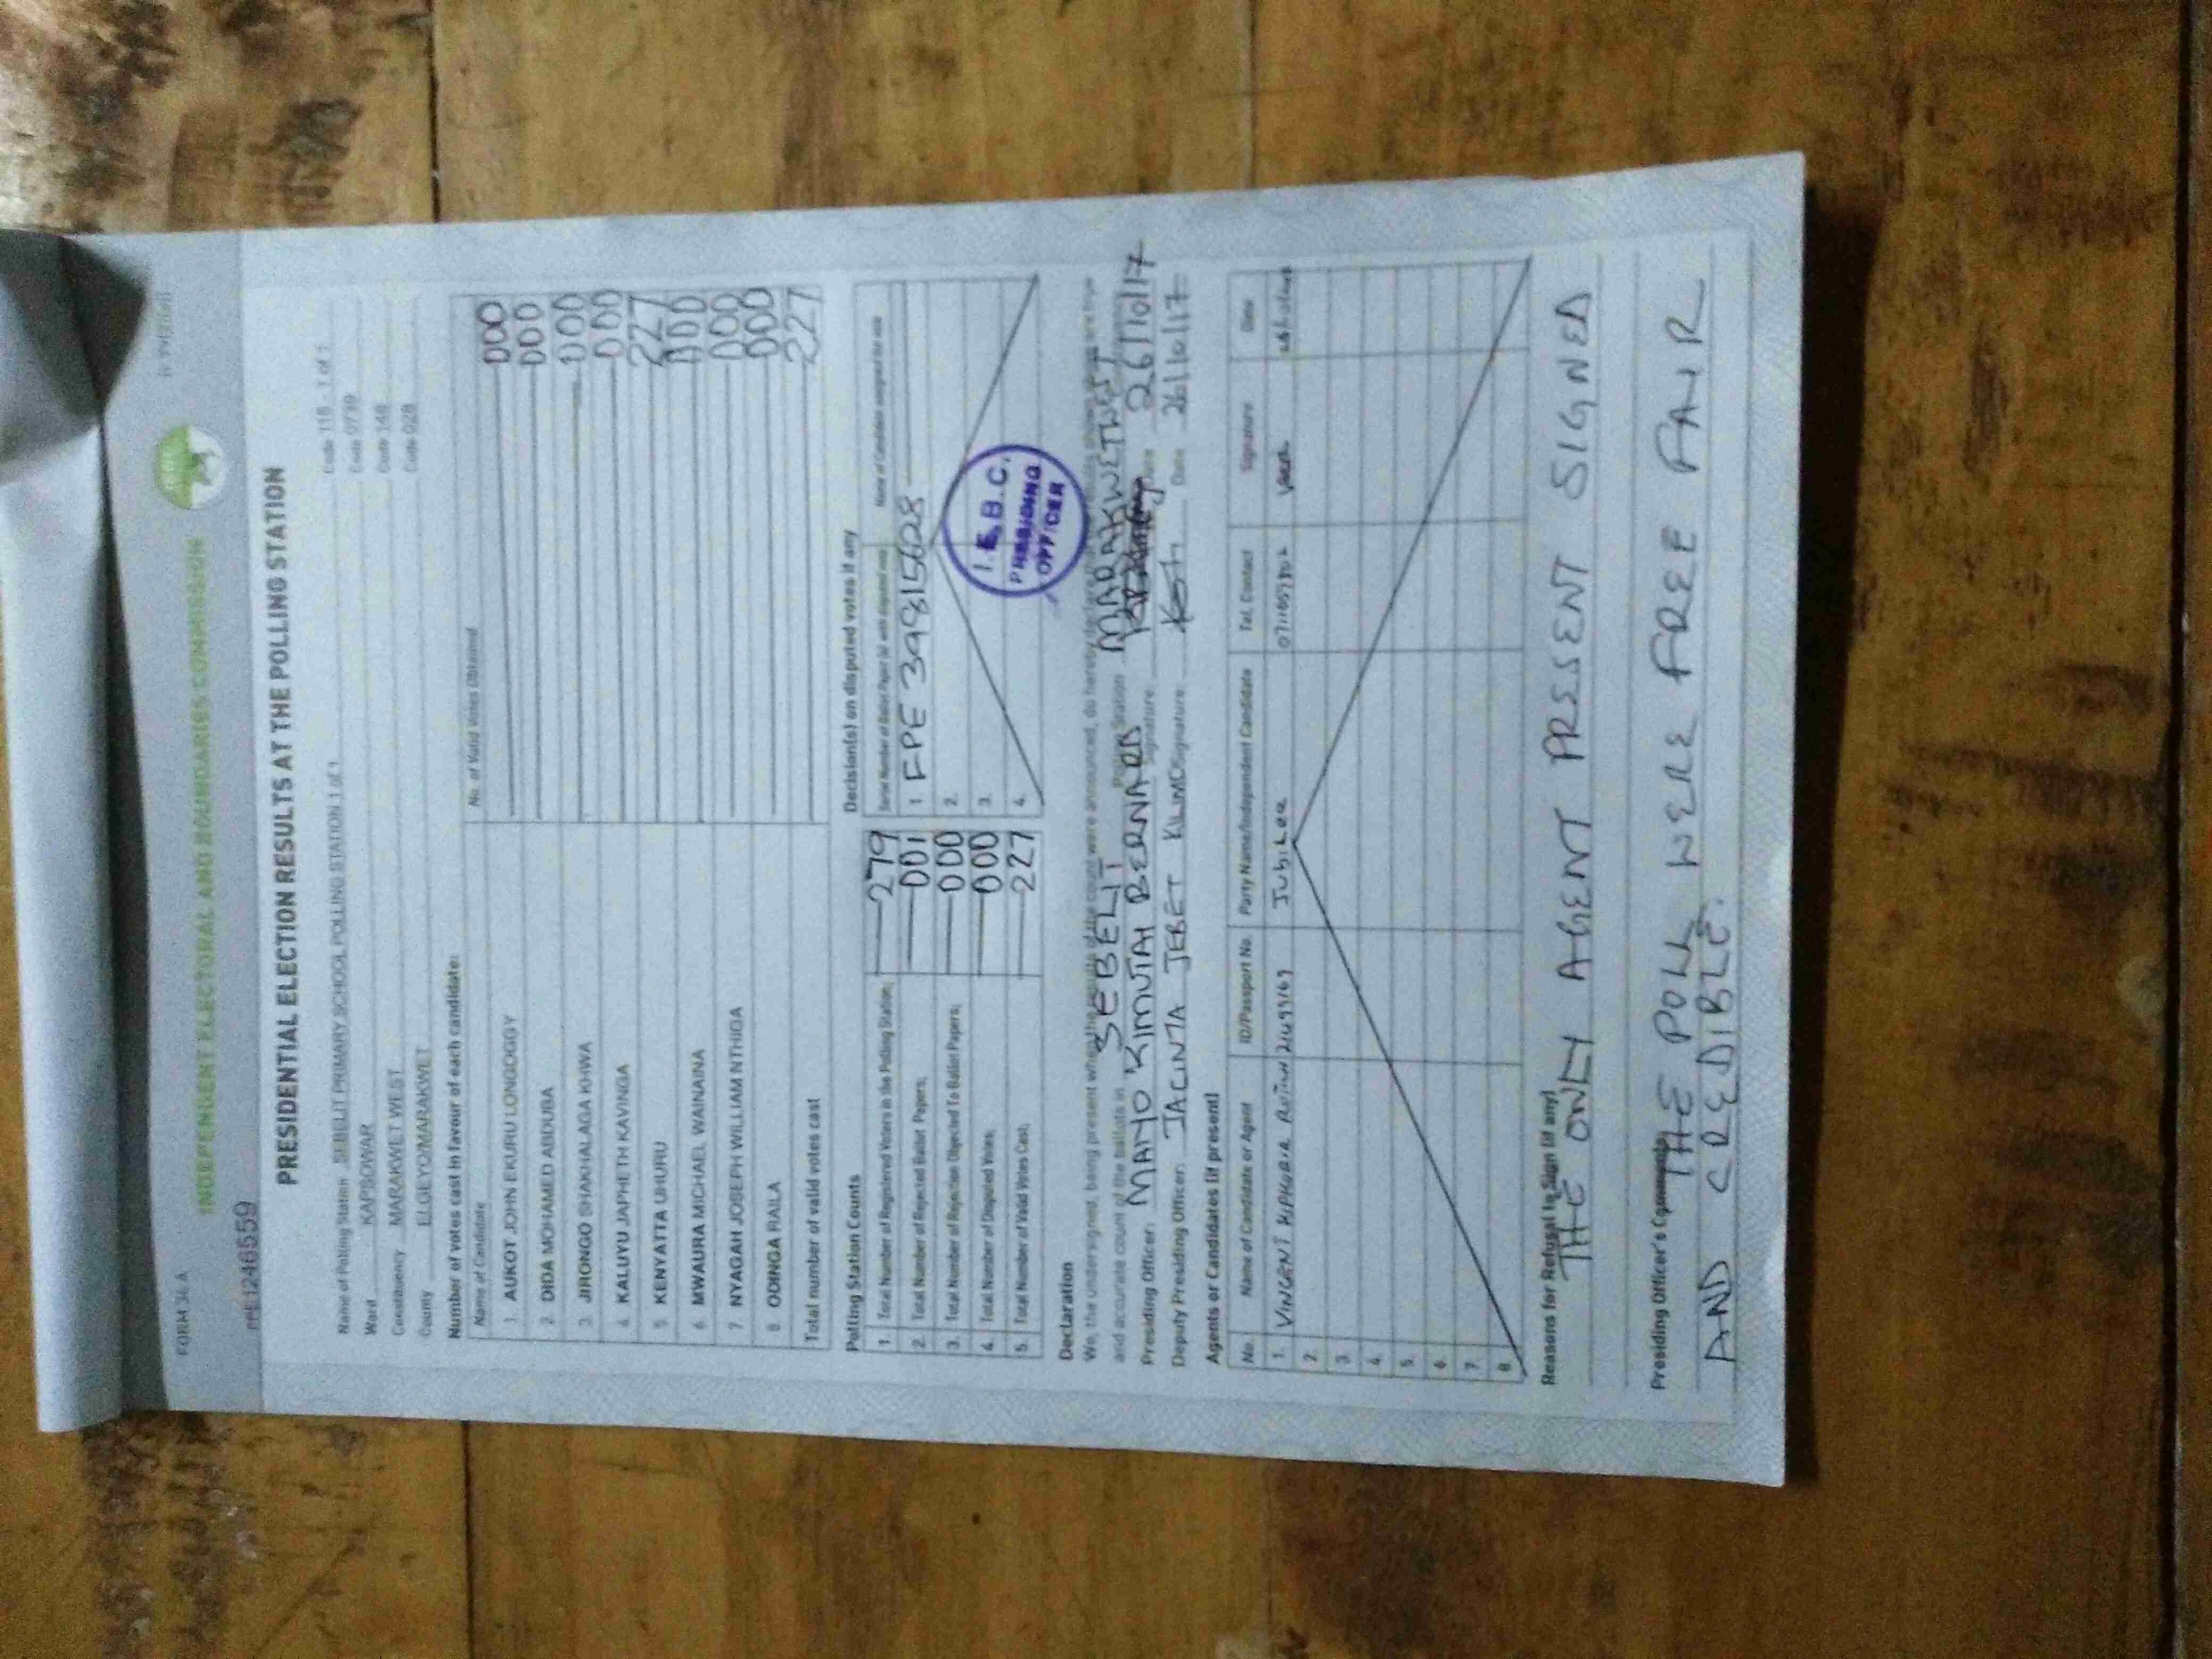 FORM 34 A
INDEPENDENT ELECTORAL AND BOUNDARIES COMMISSION
PRE1246559
PRESIDENTIAL ELECTION RESULTS AT THE POLLING STATION
Name of Polling Station SEBELIT PRIMARY SCHOOL POLLING STATION 1 of 1 Code 118 - 1 of 1
Ward KAPSOWAR Code 0739
Constituency MARAKWET WEST Code 148
County ELGEYO/MARAKWET Code 028
Number of votes cast in favour of each candidate:
Name of Candidate No. of Valid Votes Obtained
1. AUKOT JOHN EKURU LONGOGGY 000
2. DIDA MOHAMED ABDUBA 000
3. JIRONGO SHAKHALAGA KHWA 000
4. KALUYU JAPHETH KAVINGA 000
5. KENYATTA UHURU 227
6. MWAURA MICHAEL WAINAINA 000
7. NYAGAH JOSEPH WILLIAM NTHIGA 000
8. ODINGA RAILA 000
Total number of valid votes cast 227
Polling Station Counts
1. Total Number of Registered Voters in the Polling Station; 279
2. Total Number of Rejected Ballot Papers; 001
3. Total Number of Rejection Objected To Ballot Papers; 000
4. Total Number of Disputed Votes; 000
5. Total Number of Valid Votes Cast; 227
Decision(s) on disputed votes if any
Serial Number of Ballot Paper(s) with disputed vote Name of Candidate assigned the vote
1. FPE 39815628
2.
3.
4.
I.E.B.C.
PRESIDING
OFFICER
Declaration
We, the undersigned, being present when the results of the count were announced, do hereby declare
and accurate count of the ballots in SEBELIT Polling Station MARAKWET WEST
Presiding Officer: MAIYO KIMUTAI BERNARD Signature Date 26/10/17
Deputy Presiding Officer: JACINTA JEBET KILIMO Signature Date 26/10/17
Agents or Candidates (if present)
No. Name of Candidate or Agent ID/Passport No. Party Name/Independent Candidate Tel. Contact Signature Date
1. VINCENT Jubilee
2.
3.
4.
5.
6.
7.
8.
Reasons for Refusal to Sign (if any)
THE ONLY AGENT PRESENT SIGNED
Presiding Officer's Comments
THE POLL WERE FREE FAIR
AND CREDIBLE.